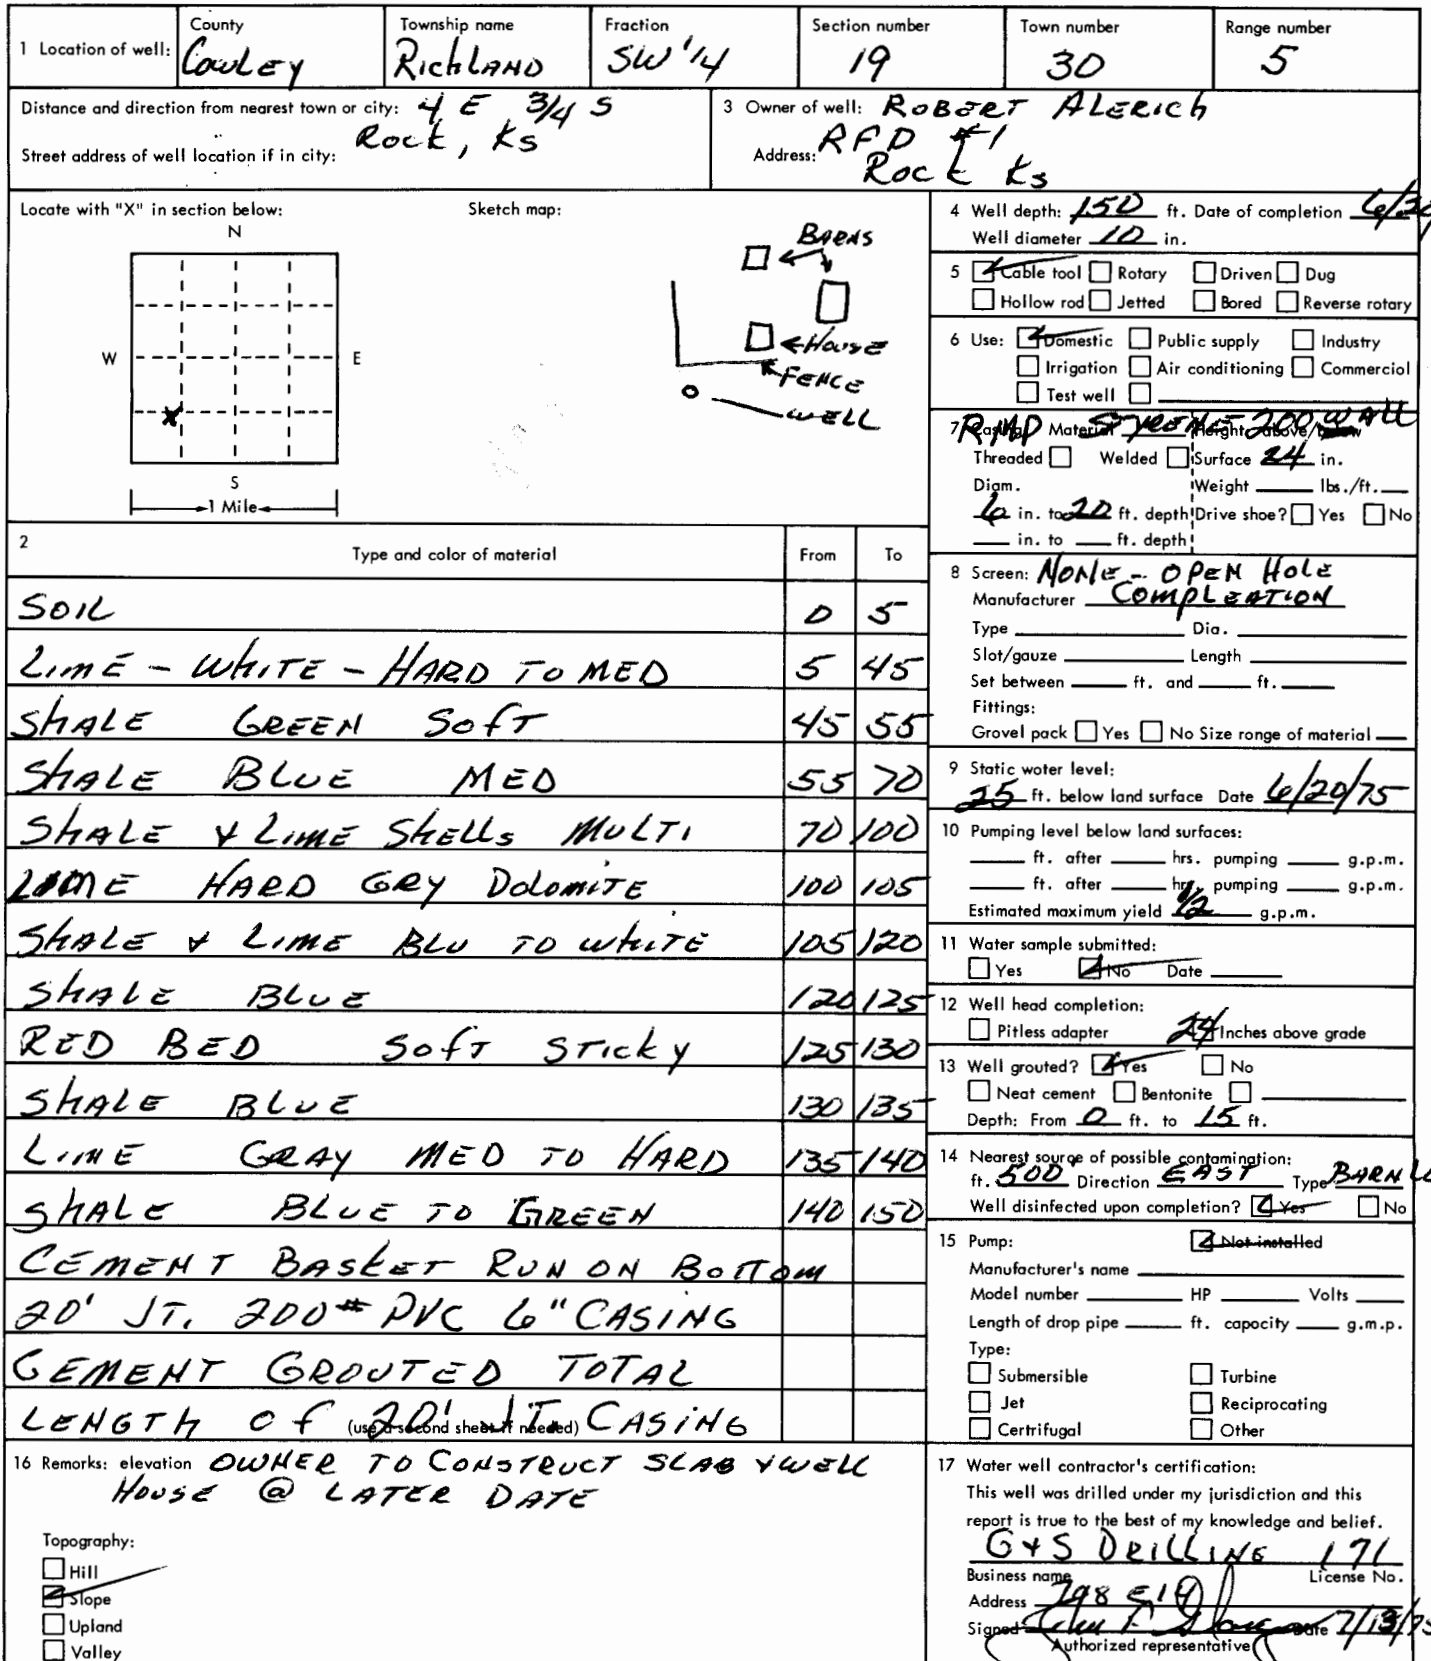 1 Location of well: County Cowley Township name Richland Fraction SW 1/4 Section number 19 Town number 30 Range number 5
Distance and direction from nearest town or city: 4 E 3/4 S
Rock, Ks
Street address of well location if in city:
3 Owner of well: ROBERT ALERICH
Address: RFD #1
Rock Ks
Locate with "X" in section below: Sketch map:
N
W E
S
1 Mile
X
BARNS
HOUSE
FENCE
WELL
2 Type and color of material From To
SOIL 0 5
LIME - WHITE - HARD TO MED 5 45
SHALE GREEN SOFT 45 55
SHALE BLUE MED 55 70
SHALE & LIME SHELLS MULTI 70 100
LIME HARD GRY DOLOMITE 100 105
SHALE & LIME BLU TO WHITE 105 120
SHALE BLUE 120 125
RED BED SOFT STICKY 125 130
SHALE BLUE 130 135
LIME GRAY MED TO HARD 135 140
SHALE BLUE TO GREEN 140 150
CEMENT BASKET RUN ON BOTTOM
20' JT. 200# PVC 6" CASING
CEMENT GROUTED TOTAL
LENGTH OF 20' JT CASING
(use a second sheet if needed)
16 Remarks: elevation OWNER TO CONSTRUCT SLAB & WELL
HOUSE @ LATER DATE
Topography:
Hill
Slope
Upland
Valley
4 Well depth: 150 ft. Date of completion
Well diameter 10 in.
5 Cable tool Rotary Driven Dug
Hollow rod Jetted Bored Reverse rotary
6 Use: Domestic Public supply Industry
Irrigation Air conditioning Commercial
Test well
7 Casing: Material RMP STYRENE 200 WALL Height: above/below
Threaded Welded Surface 24 in.
Diam. Weight lbs./ft.
6 in. to 20 ft. depth Drive shoe? Yes No
in. to ft. depth
8 Screen: NONE - OPEN HOLE
Manufacturer COMPLEATION
Type Dia.
Slot/gauze Length
Set between ft. and ft.
Fittings:
Grovel pack Yes No Size range of material
9 Static water level:
25 ft. below land surface Date 6/20/75
10 Pumping level below land surfaces:
ft. after hrs. pumping g.p.m.
ft. after hrs. pumping g.p.m.
Estimated maximum yield 1/2 g.p.m.
11 Water sample submitted:
Yes No Date
12 Well head completion:
Pitless adapter 24 Inches above grade
13 Well grouted? Yes No
Neat cement Bentonite
Depth: From 0 ft. to 15 ft.
14 Nearest source of possible contamination:
ft. 500' Direction EAST Type BARN
Well disinfected upon completion? Yes No
15 Pump: Not installed
Manufacturer's name
Model number HP Volts
Length of drop pipe ft. capacity g.m.p.
Type:
Submersible Turbine
Jet Reciprocating
Certrifugal Other
17 Water well contractor's certification:
This well was drilled under my jurisdiction and this
report is true to the best of my knowledge and belief.
G & S DRILLING 171
Business name License No.
Address 798 E 19
Signed Date
Authorized representative